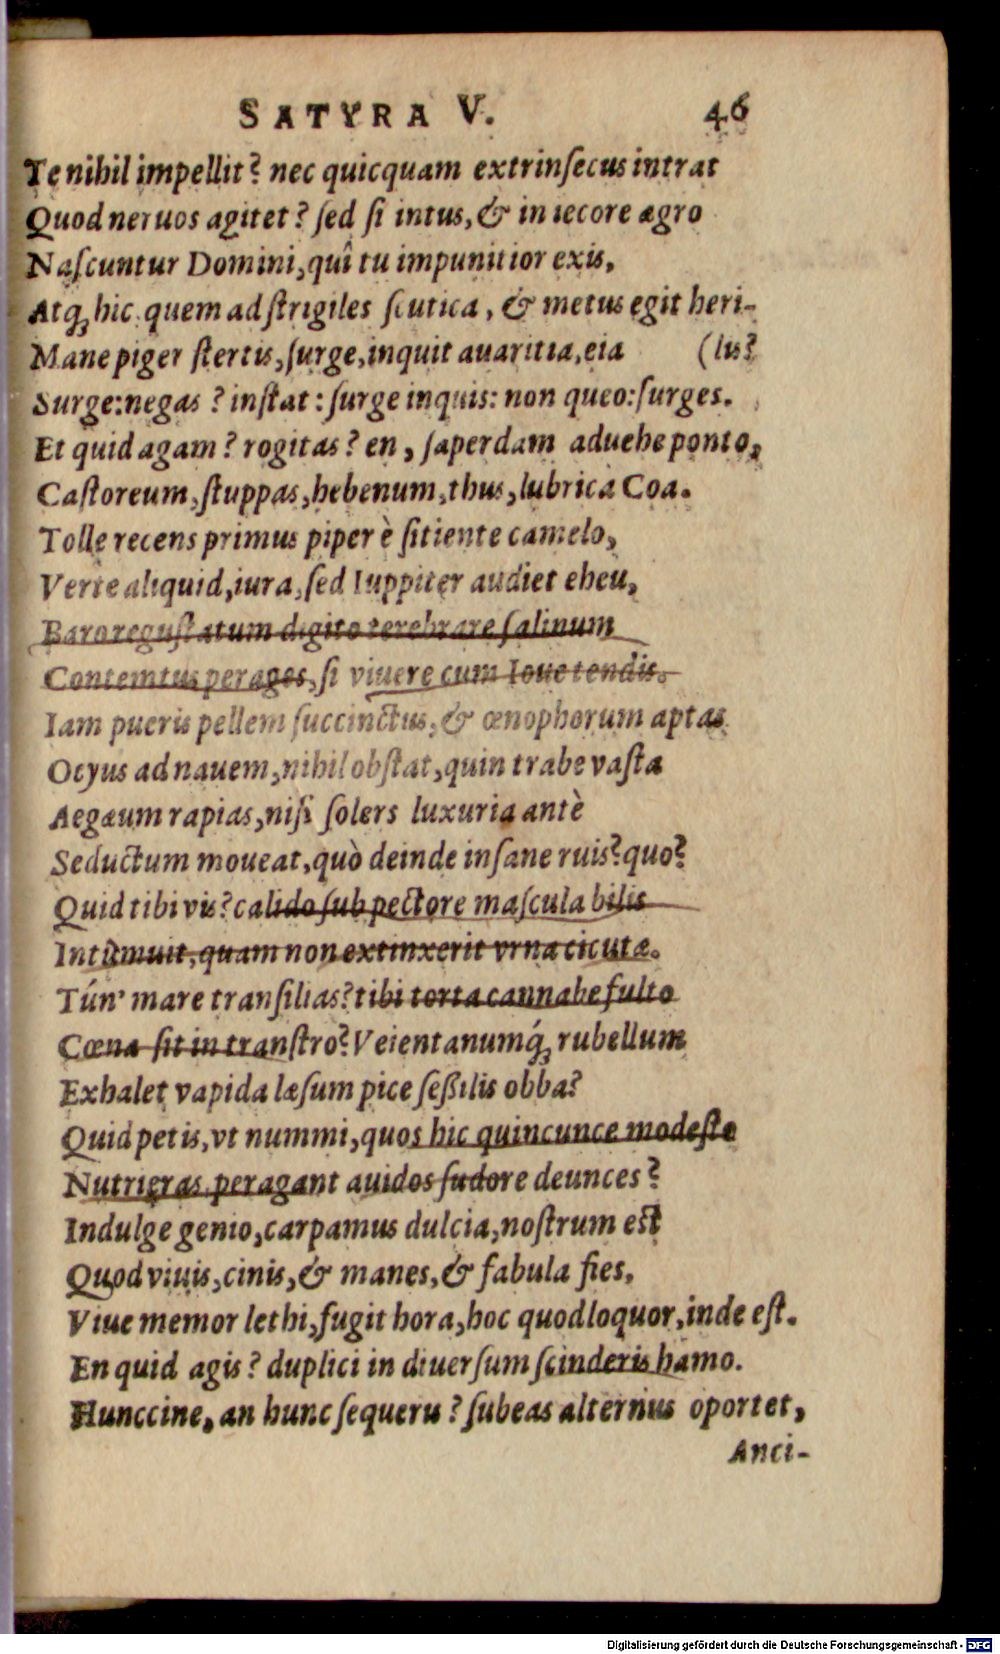 SATYRA V. 46
Te nihil impellit? nec quicquam extrinſecus intrat
Quod neruos agitet? ſed ſi intus, & in iecore ægro
Naſcuntur Domini, quî tu impunitior exis,
Atq́; hic quem ad ſtrigiles ſcutica, & metus egit heri-
Mane piger ſtertis, ſurge, inquit auaritia, eia (lis?
Surge: negas? inſtat: ſurge inquis: non queo: ſurges.
Et quid agam? rogitas? en, ſaperdam aduehe ponto,
Caſtoreum, ſtuppas, hebenum, thus, lubrica Coa.
Tolle recens primus piper è ſitiente camelo,
Verte aliquid, iura, ſed Iuppiter audiet eheu,
Baro reguſtatum digito terebrare ſalinum
Contemtus perages, ſi viuere cum Ioue tendis.
Iam pueris pellem ſuccinctus, & œnophorum aptas
Ocyus ad nauem, nihil obſtat, quin trabe vaſta
Aegæum rapias, niſi ſolers luxuria antè
Seductum moueat, quò deinde inſane ruis? quo?
Quid tibi vis? calido ſub pectore maſcula bilis
Intumuit, quam non extinxerit vrna cicutæ.
Tún' mare tranſilias? tibi torta cannabe fulto
Cœna ſit in tranſtro? Veientanumq́; rubellum
Exhalet vapida læſum pice ſeßilis obba?
Quid petis, vt nummi, quos hic quincunce modeſto
Nutrieras, peragant auidos ſudore deunces?
Indulge genio, carpamus dulcia, noſtrum eſt
Quod viuis, cinis, & manes, & fabula fies,
Viue memor lethi, fugit hora, hoc quod loquor, inde eſt.
En quid agis? duplici in diuerſum ſcinderis hamo.
Hunccine, an hunc ſequeris? ſubeas alternus oportet,
Anci-
Digitalisierung gefördert durch die Deutsche Forschungsgemeinschaft - DFG